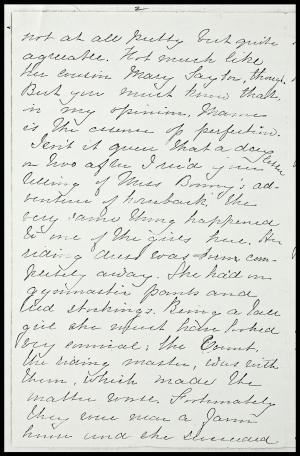 2
not at all pretty but quite
agreeable. Not much like
her cousin Mary Saylor, though.
But you must know that,
in my opinion, Mame
is the essence of perfection.
Isn't it queer that a day
or two after I rec'd your letter
telling of Miss Bonny's ad-
venture of horseback, the
very same thing happened
to one of the girls here. Her
riding dress was torn com-
pletely away. She had on
gymnastic pants and
red stockings. Being a tall
girl she must have looked
very comical; the Count,
the riding master, was with
them, which made the
matter worse. Fortunately
they were near a farm
house and she succeeded